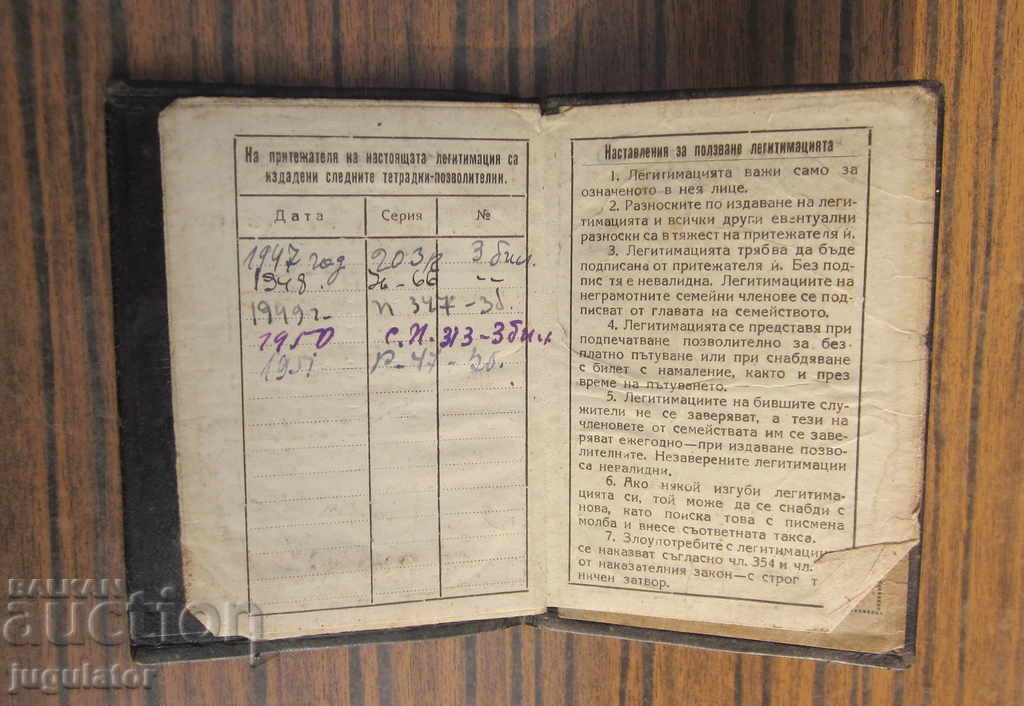 На притежателя на настоящата легитимация са
издадени следните тетрадки-позволителни.
Дата Серия №
1947 год 203 3 бил.
1948. 66 -"-
1949 г. П 347 - 3б.
1950 с. П. 313 - 3 бил.
1951 47 - 3б.
Наставления за ползване легитимацията
1. Легитимацията важи само за
означеното в нея лице.
2. Разноските по издаване на леги-
тимацията и всички други евентуални
разноски са в тяжест на притежателя ѝ.
3. Легитимацията трябва да бъде
подписана от притежателя ѝ. Без под-
пис тя е невалидна. Легитимациите на
неграмотните семейни членове се под-
писват от главата на семейството.
4. Легитимацията се представя при
подпечатване позволително за без-
платно пътуване или при снабдяване
с билет с намаление, както и през
време на пътуването.
5. Легитимациите на бившите слу-
жители не се заверяват, а тези на
членовете от семействата им се заве-
ряват ежегодно—при издаване позво-
лителните. Незаверените легитимации
са невалидни.
6. Ако някой изгуби легитима-
цията си, той може да се снабди с
нова, като поиска това с писмена
молба и внесе съответната такса.
7. Злоупотребите с легитимации
се наказват съгласно чл. 354 и чл.
от наказателния закон—с строг т
ничен затвор.
БАЛКАН
auction
jugulator